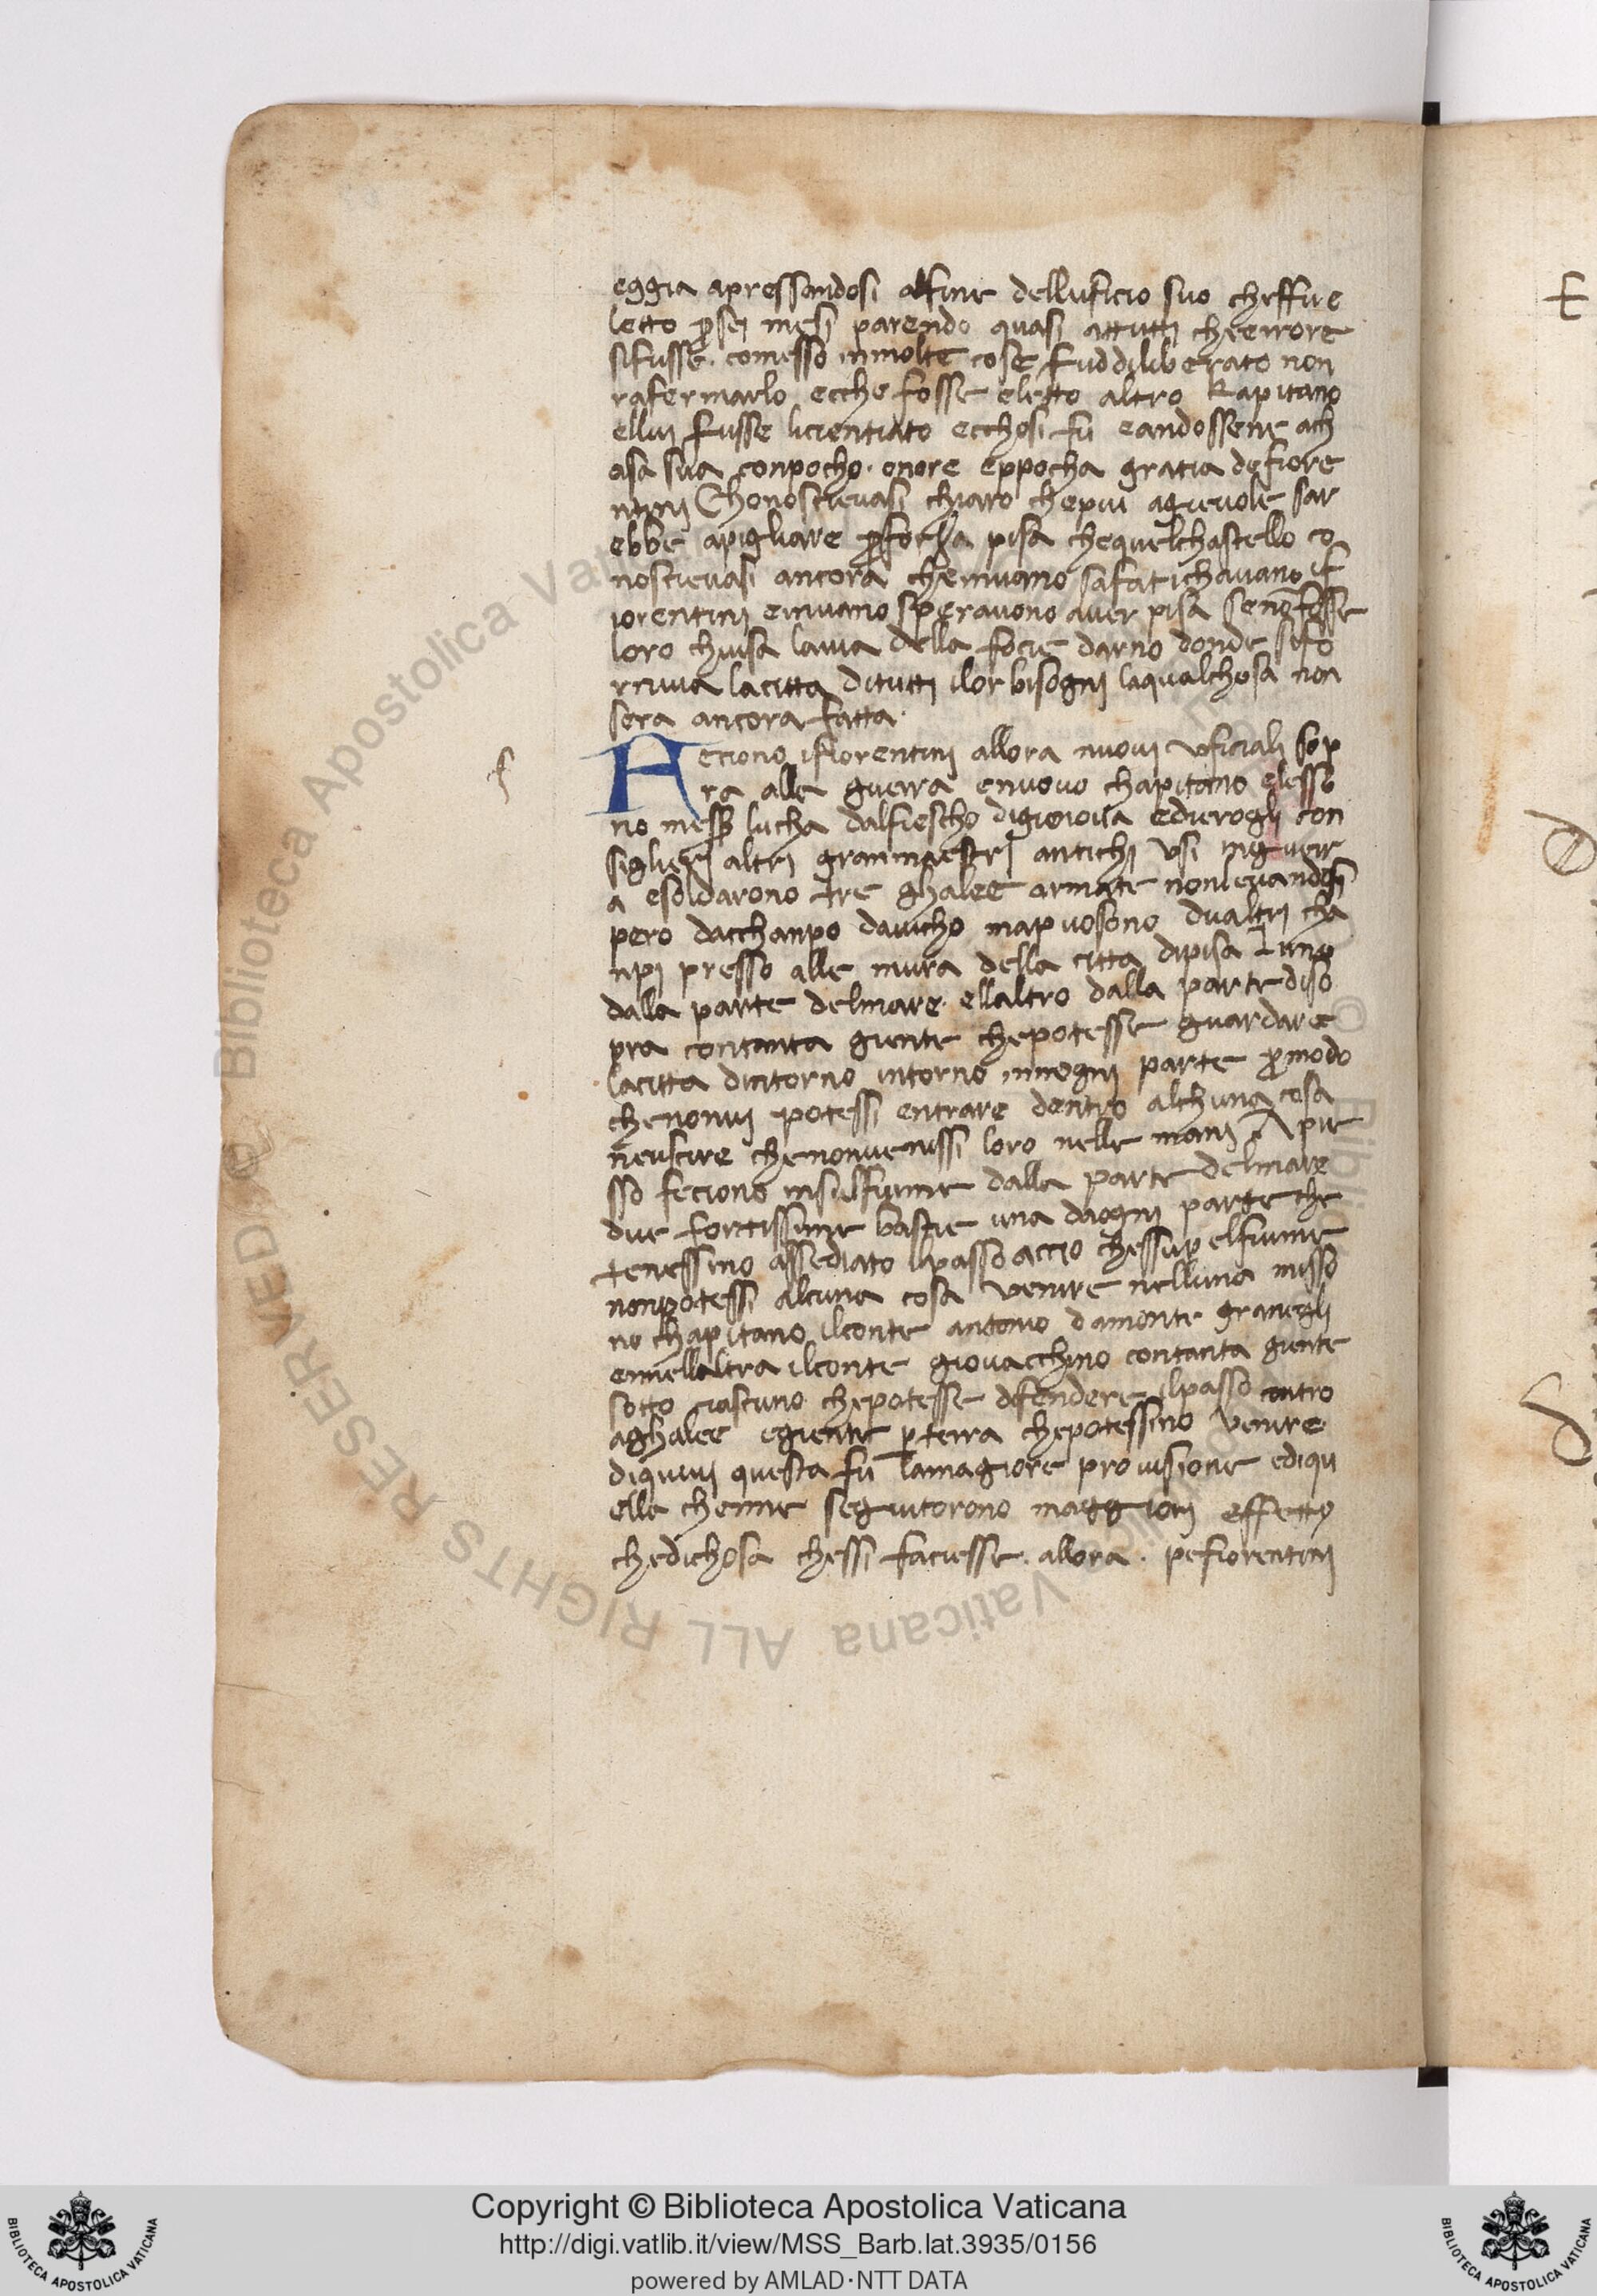 eggia apressandosi alfine delluficio suo cheffu e
letto p sei mesi parendo quasi attutti cheerrore
sifusse. comesso inmolte cose fuddiliberato non
rafermarlo ecche fosse eletto altro Kapitano
ellui fusse licientiato ecchosi fu eandossene ach
asa sua conpocho. onore eppocha gratia defiore
ntini Chonoscievasi chiaro chepiu agievole sar
ebbe apigliare pforza pisa chequelchastello co
noscievasi ancora cheinvano safatichavano if
iorentini einvano speravono aver pisa senō fosse
loro chiusa lavia della focie darno donde sifo
rniva lacitta ditutti ilor bisogni laqualchosa non
sera ancora fatta.
f
Feciono ifiorentini allora nuovi uficiali sop
ra alle guerra enuovo chapitano elesso
no mess lucha dalfiescho digienova edierogli con
siglieri altri granmaestri antichi usi inguerr
a esoldarono tre ghalee armate nonlevandosi
pero dacchanpo davicho mapuosono dualtri cha
npi presso alle mura della citta dipisa luno
dalla parte delmare. ellaltro dalla parte diso
pra contanta giente chepotesse guardare
lacitta dintorno intorno innogni parte p modo
chenonvi potessi entrare dentro alchuna cosa
neuscire chenonvenissi loro nelle mani Apre
sso feciono insulfiume dalla parte delmare
due fortissime bastie una daogni parte che
tenessino assediato ilpasso accio chessu pelfiume
nonpotessi alcuna cosa venire nelluna misso
no chapitano ilconte antonio damonte granegli
ennellaltra ilconte giovacchino contanta giente
sotto ciascuno chepotesse difendere ilpasso contro
aghalee egiente p terra chepotessino venire
diquivi questa fu lamagiore provisione ediqu
ella chenne seguitorono maggiori effetto
chedichosa chessi faciesse. allora. pefiorentini
Copyright © Biblioteca Apostolica Vaticana
http://digi.vatlib.it/view/MSS_Barb.lat.3935/0156
powered by AMLAD·NTT DATA
BIBLIOTECA APOSTOLICA VATICANA
BIBLIOTECA APOSTOLICA VATICANA